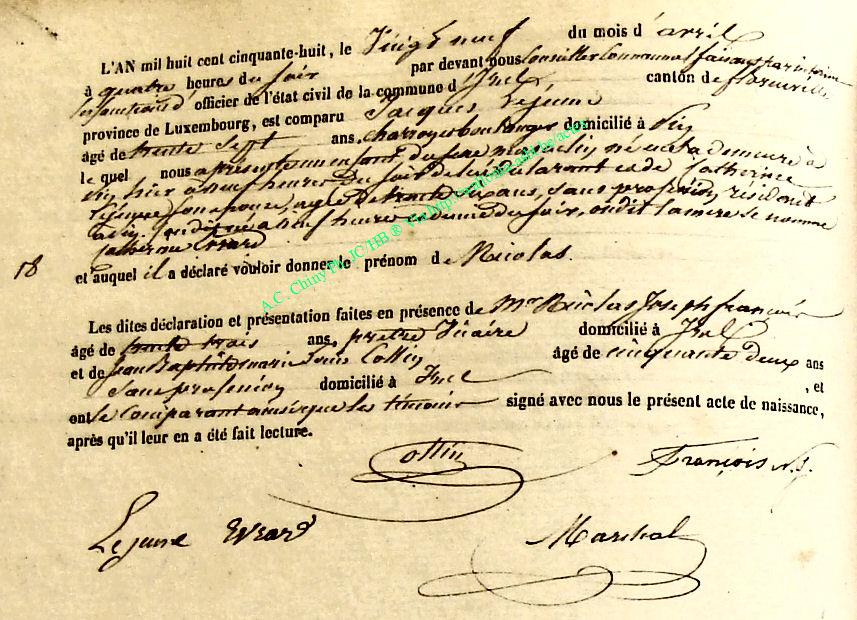 L'AN mil huit cent cinquante-huit, le Vingt neuf du mois d'avril
à quatre heures du soir par devant nous Conseiller Communal faisant par interim
les fonctions d'officier de l'état civil de la commune d'Izel, canton de florenville,
province de Luxembourg, est comparu Jacques Lejeune
âgé de trente sept ans, boulanger domicilié à Pin
le quel nous a présenté un enfant, du sexe masculin, né en sa demeure à
Pin, hier à neuf heures du soir de lui déclarant et de Catherine
son épouse, agée de trente six ans, sans profession, résidant
à neuf heures et demie du soir, la mère se nomme
Catherine Evrard
18
et auquel il a déclaré vouloir donner le prénom de Nicolas.
Les dites déclaration et présentation faites en présence de Mr Nicolas Joseph françois
âgé de trente trois ans, prêtre Vicaire domicilié à Izel
et de Jean Baptiste marie Louis Collin âgé de cinquante deux ans
Sans profession domicilié à Izel , et
ont le Comparant ainsi que les témoins signé avec nous le présent acte de naissance,
après qu'il leur en a été fait lecture.
Collin François N. J.
Lejeune Evrard Marchal
A.C. Chiny